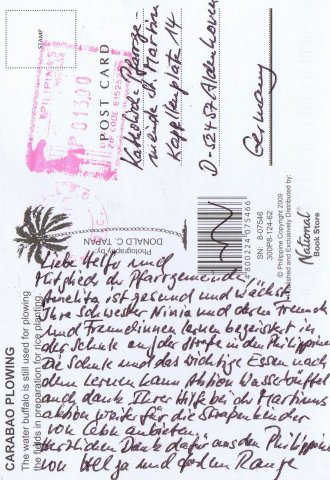 STAMP
PILIPINAS
P013.00
ZIP CODE
POST CARD
Katholische Pfarrge-
meinde St. Martin
Kappellenplatz 14
D-52457 Aldenhoven
Germany
Photography by
DONALD C. TAPAN
4800224075466
SN: 8-07546
300P8-124-62
© Philippine Copyright 2009
and Exclusively Distributed by:
National
Book Store
CARABAO PLOWING
The water buffalo is still used for plowing
the fields in preparation for rice planting.
Liebe Helfer und
Mitglieder der Pfarrgemeinde,
Annelita ist gesund und wächst.
Ihre Schwester Ninia und deren Freunde
und Freundinnen lernen begeistert in
der Schule auf der Straße in den Philippinen
Die Schule und das wichtige Essen nach
dem Lernen kann Aktion Wasserbüffel
auch dank Ihrer Hilfe bei der Martinus
aktion weiter für die Strassenkinder
von Cebu anbieten.
Herzlichen Dank dafür aus den Philippinen
von Helga und